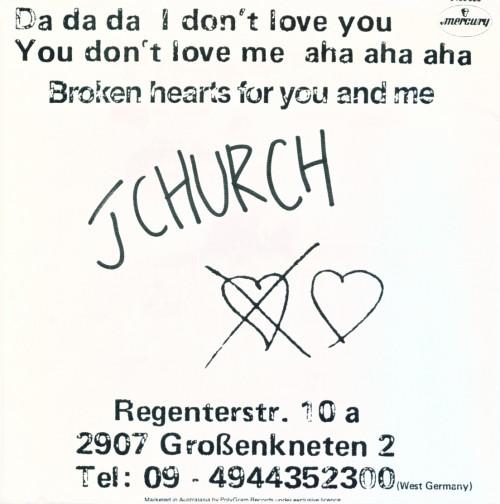 mercury
Da da da I don't love you
You don't love me aha aha aha
Broken hearts for you and me
J CHURCH
Regenterstr. 10 a
2907 Großenkneten 2
Tel: 09 - 4944352300 (West Germany)
Marketed in Australasia by PolyGram Records under exclusive licence